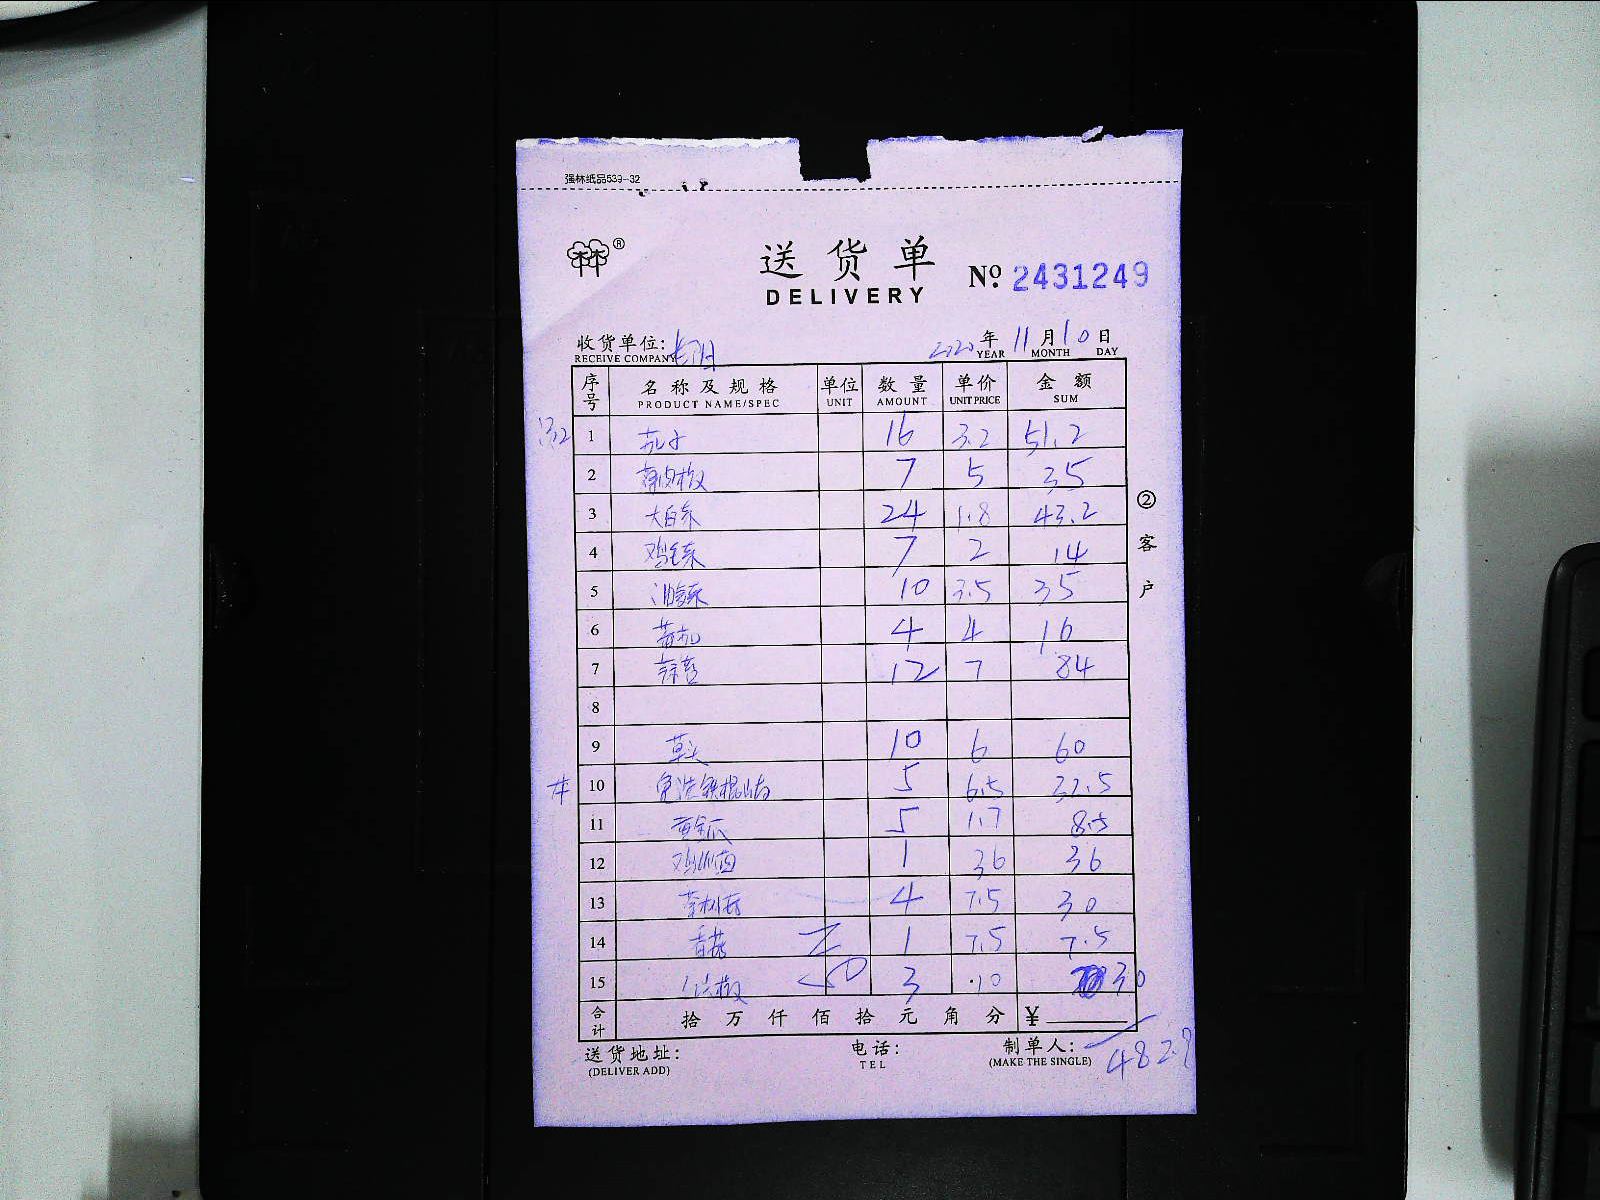 强林纸品539-32
林林®
送货单
DELIVERY
№ 2431249
收货单位:
RECEIVE COMPANY
2020年 11月 10日
YEAR MONTH DAY
序号 名称及规格 单位 数量 单价 金额
PRODUCT NAME/SPEC UNIT AMOUNT UNIT PRICE SUM
1 茄子 16 3.2 51.2
2 薄肉椒 7 5 35
3 大白菜 24 1.8 43.2
4 鸡毛菜 7 2 14
5 10 3.5 35
6 番茄 4 4 16
7 12 7 84
8
9 草头 10 6 60
10 免洗铁棍山药 5 6.5 32.5
11 黄金瓜 5 1.7 8.5
12 1 36 36
13 茶树菇 4 7.5 30
14 香菇 1 7.5 7.5
15 3 10 30
合计 拾 万 仟 佰 拾 元 角 分 ¥
482.9
送货地址: 电话: 制单人:
(DELIVER ADD) TEL (MAKE THE SINGLE)
② 客户